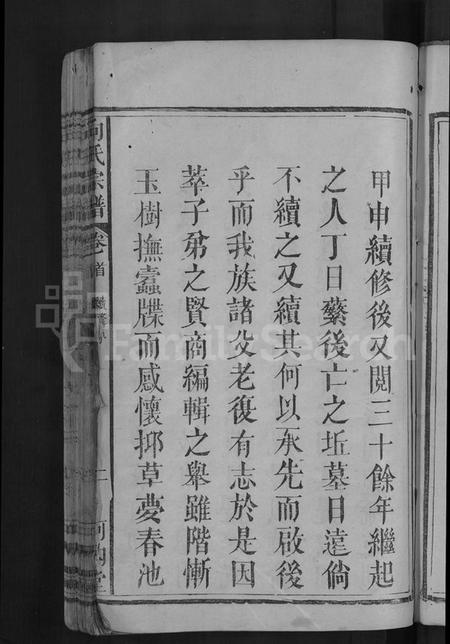 甲申續修後又閱三十餘年繼起
之人丁日蕃後亡之坵墓日遠倘
不續之又續其何以承先而啟後
乎而我族諸父老復有志於是因
萃子弟之賢商編輯之舉雖階慚
玉樹撫蠹牒而感懷抑草夢春池
向氏宗譜
卷首
二
FamilySearch